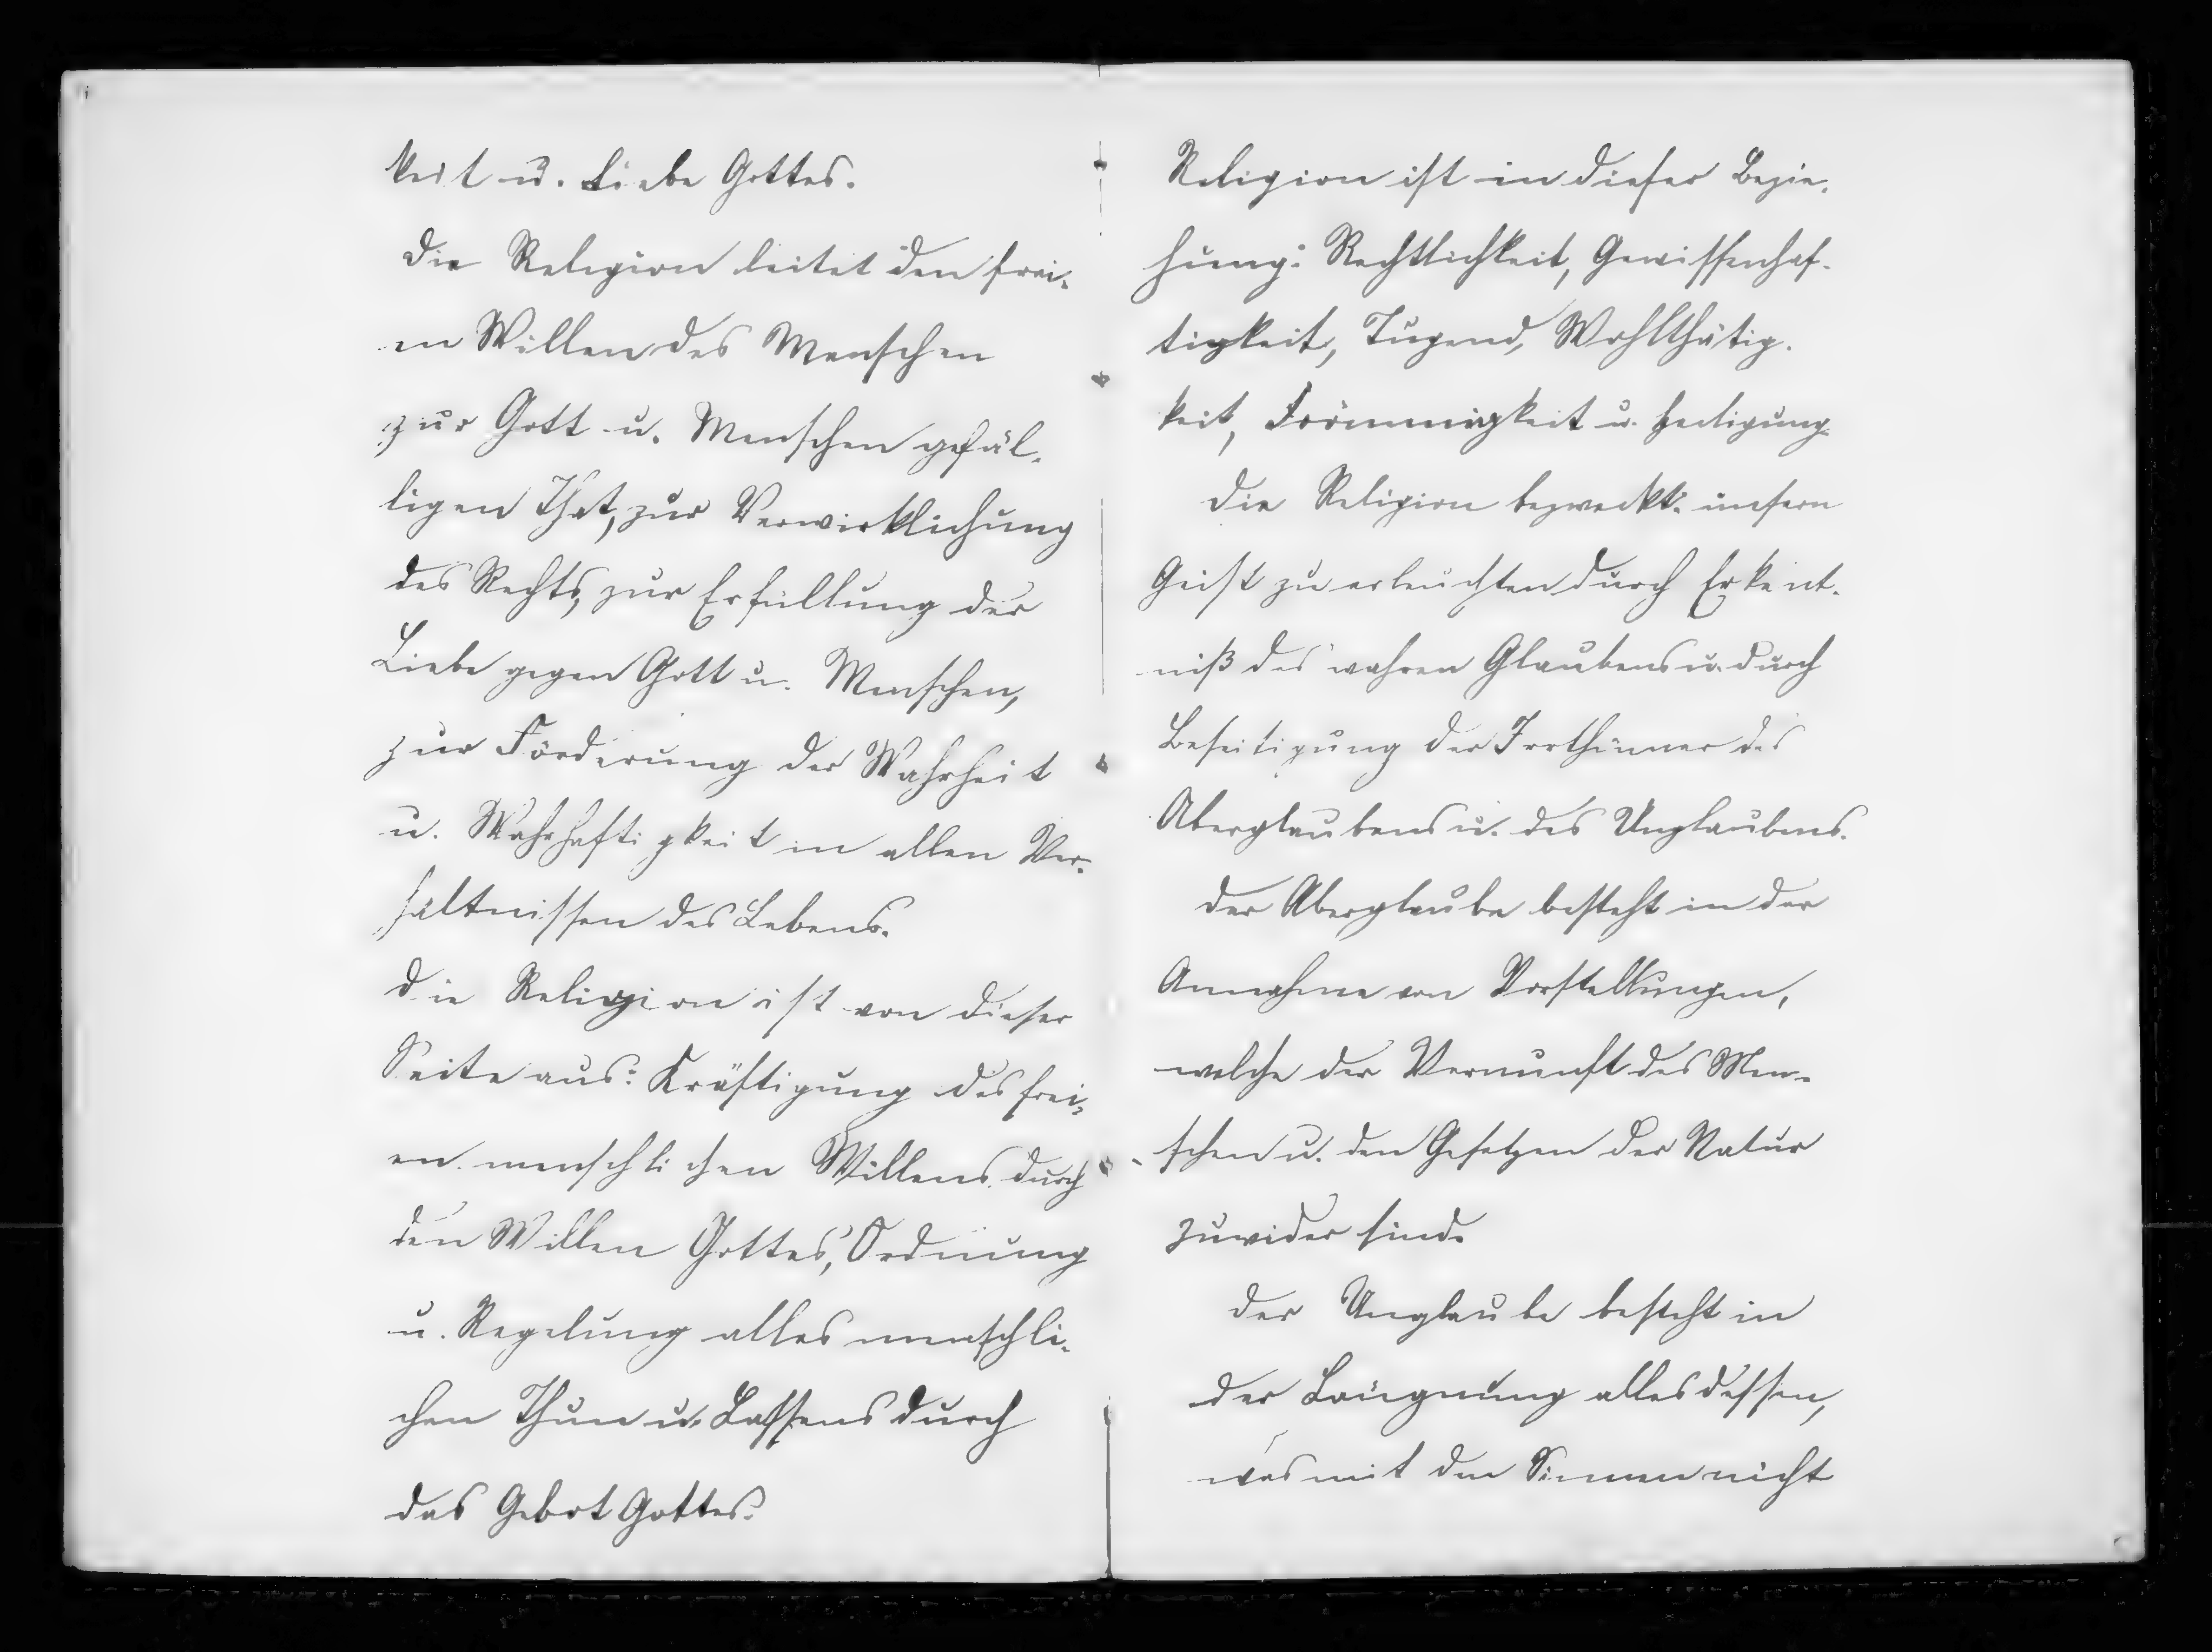 keit u. Liebe Gottes.
Die Religion leitet den frei-
en Willen des Menschen
zur Gott u. Menschen gefäl-
ligen That, zur Verwirklichung
des Rechts, zur Erfüllung der
Liebe gegen Gott u. Menschen,
zur Förderung der Wahrheit
u. Wahrhaftigkeit in allen Ver-
hältnissen des Lebens.
Die Religion ist von dieser
Seite aus: Kräftigung des frei-
en menschlichen Willens durch
den Willen Gottes, Ordnung
u. Regelung alles menschli-
chen Thun u. Lassens durch
das Gebot Gottes.
Religion ist in dieser Bezie-
hung: Rechtlichkeit, Gewissenhaf-
tigkeit, Tugend, Wohlthätig-
keit, Frömmigkeit u. Heiligung
Die Religion bezweckt: unsern
Geist zu erleuchten durch Erkent-
niß des wahren Glaubens u. durch
Beseitigung der Irrthümer des
Aberglaubens u. des Unglaubens.
Der Aberglaube besteht in der
Annahme von Vorstellungen,
welche der Vernunft des Men-
schen u. den Gesetzen der Natur
zuwider sind.
Der Unglaube besteht in
der Läugnung alles dessen,
was mit den Sinnen nicht